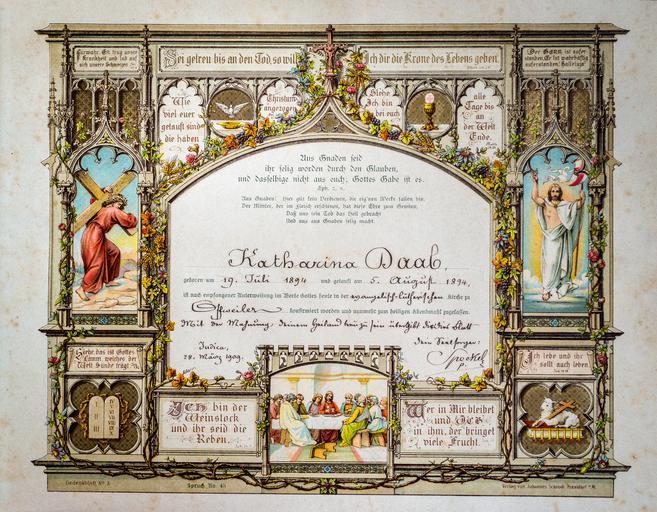 Fürwahr, Er trug unsre
Krankheit und lud auf
sich unsere Schmerzen.
Sei getreu bis an den Tod, so will
Ich dir die Krone des Lebens geben.
Der HErr ist aufer
standen, Er ist wahrhaftig
auferstanden! Halleluja!
Wie
viel euer
getauft sind
die haben
Christum
angezogen.
Siehe
Ich bin
bei euch
alle
Tage bis
an der
Welt
Ende.
Aus Gnaden seid
ihr selig worden durch den Glauben,
und dasselbige nicht aus euch; Gottes Gabe ist es.
Eph. 2, 8.
Aus Gnaden! Hier gilt kein Verdienen, die eig'nen Werke fallen hin.
Der Mittler, der im Fleisch erschienen, hat diese Ehre zum Gewinn,
Daß uns sein Tod das Heil gebracht
Und uns aus Gnaden selig macht.
Katharina Daab,
geboren am 19. Juli 1894 und getauft am 5. August 1894,
ist nach empfangener Unterweisung im Worte Gottes heute in der evangelisch-lutherischen Kirche zu
konfirmiert worden und nunmehr zum heiligen Abendmahl zugelassen.
Mit der Mahnung, deinem Heiland treu zu sein übergibt dir dies Blatt
Judica, dein Seelsorger:
28. März 1909.
Siehe, das ist Gottes
Lamm, welches der
Welt Sünde trägt.
Ich lebe und ihr
sollt auch leben.
I
II
III
ICH bin der
Weinstock
und ihr seid die
Reben.
Wer in Mir bleibet
und ICH
in ihm, der bringet
viele Frucht.
Gedenkblatt No. 3.
Spruch No. 40
Verlag von Johannes Schrodt, Frankfurt a/M.